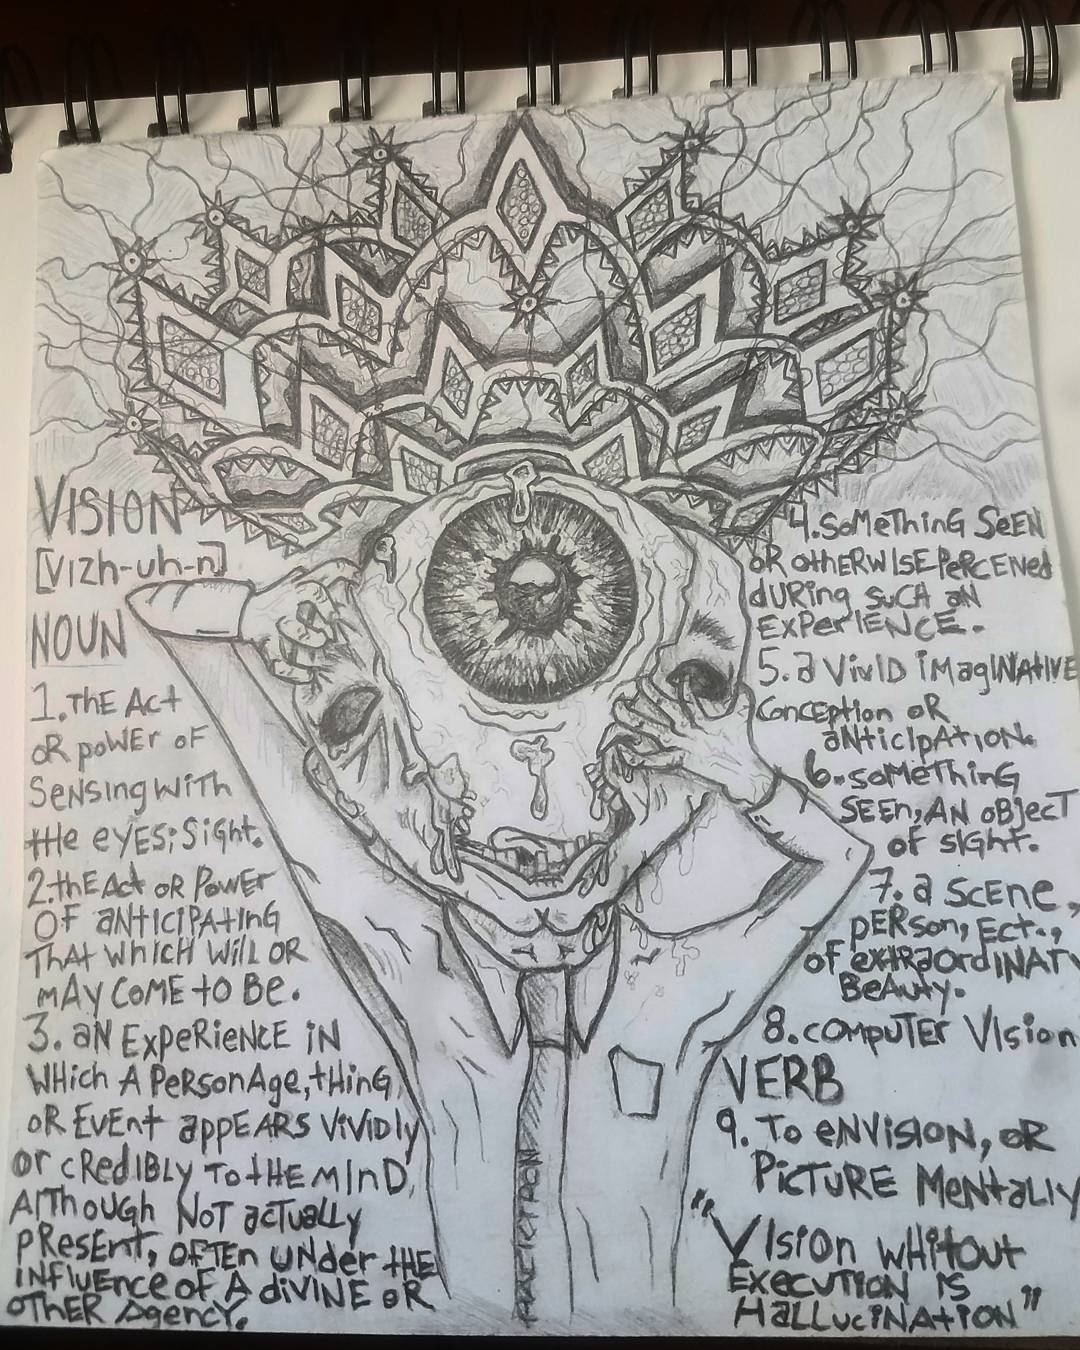 VISION
[vizh-uh-n]
NOUN
1. The Act
or power of
Sensing with
the eyes; sight.
2. the Act or Power
of anticipating
That which will or
may come to be.
3. an Experience in
which a personage, thing
or event appears vividly
or credibly to the mind,
although not actually
present, often under the
influence of a divine or
other agency.
4. something seen
or otherwise perceived
during such an
experience.
5. a vivid imaginative
conception or
anticipation.
6. something
seen, an object
of sight.
7. a scene,
person, ect.,
of extraordinary
beauty.
8. computer vision
VERB
9. To envision, or
picture mentally
"Vision whitout
execution is
Hallucination"